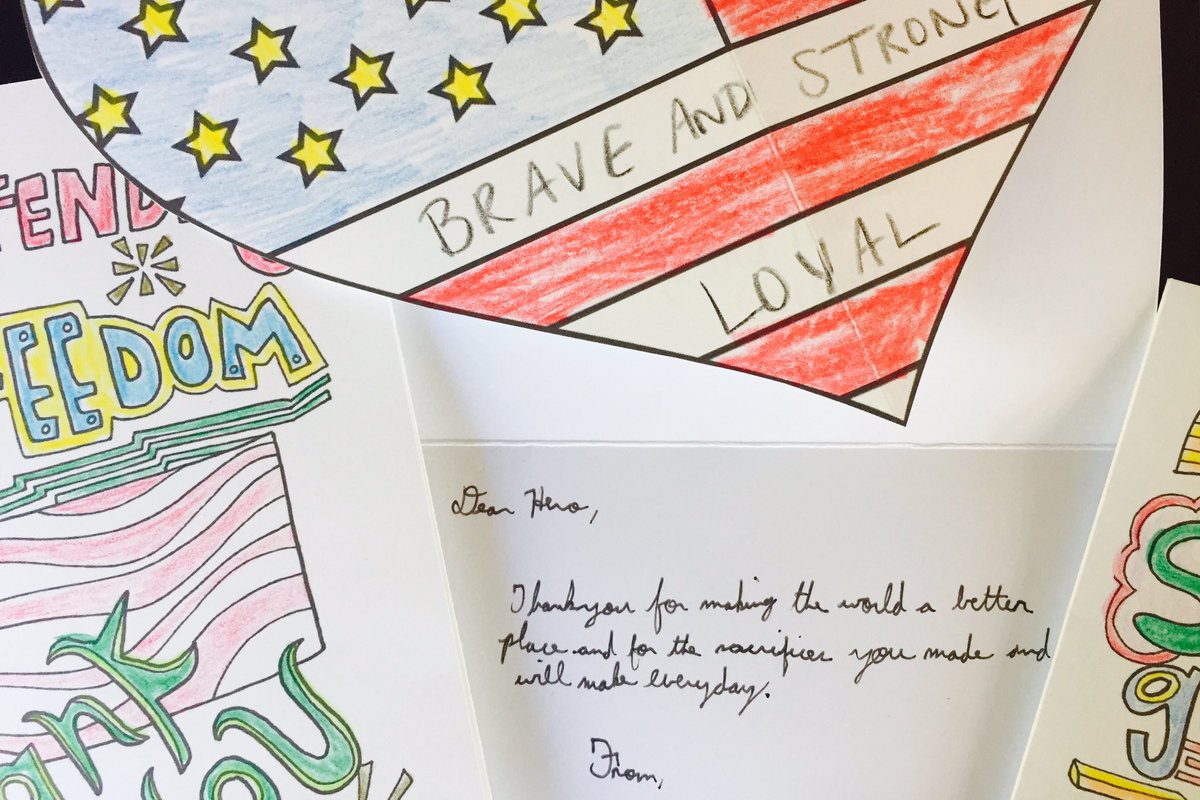 BRAVE AND STRONG
LOYAL
FEND
FREEDOM
Thank
YOU
Dear Hero,
Thankyou for making the world a better
place and for the sacrifices you made and
will make everyday.
From,
S
g